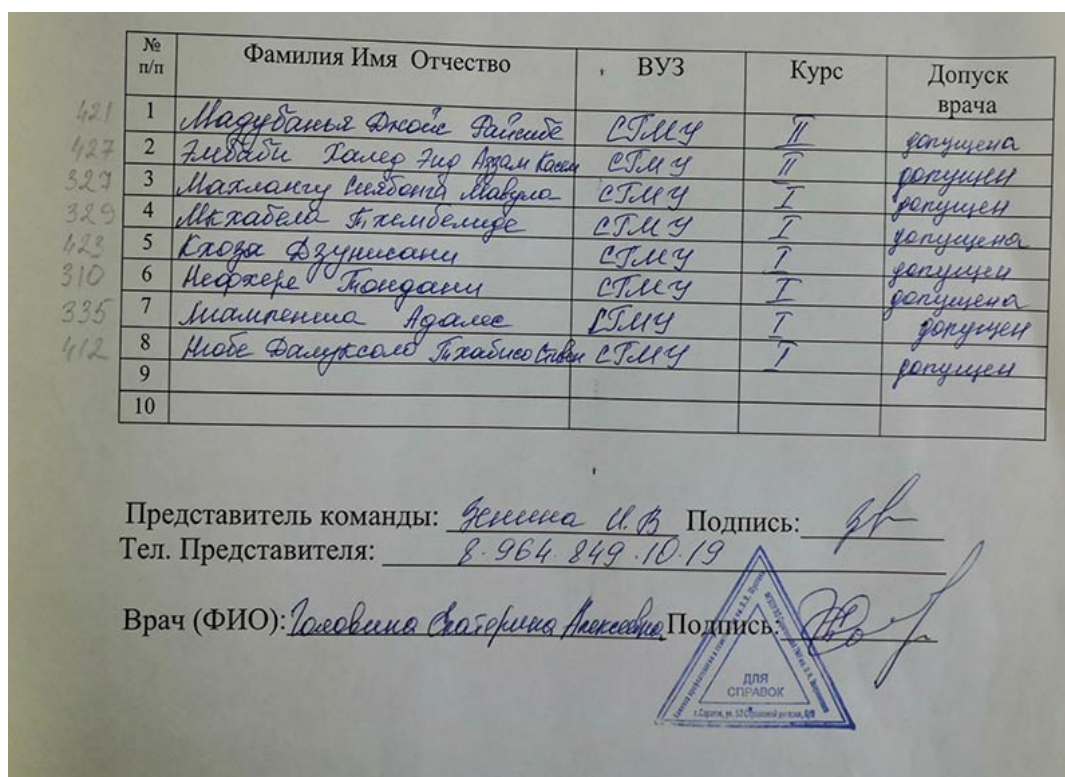 № п/п Фамилия Имя Отчество ВУЗ Курс Допуск врача
421 1 Мадубанья Джойс СГМУ II допущена
427 2 Эльбаби Халед Эид Аззам Касем СГМУ II допущен
327 3 Махлангу Сиябонга Мавула СГМУ I допущен
329 4 Мкхабела Тхембелиде СГМУ I допущена
423 5 Кхоза Дзунисани СГМУ I допущен
310 6 Нефхере Тондани СГМУ I допущена
335 7 Адалес СГМУ I допущен
412 8 Далуксоло Тхабисо СГМУ I допущен
9
10
Представитель команды: Зенина И.В Подпись:
Тел. Представителя: 8.964.849.10.19
Врач (ФИО): Головина Екатерина Алексеевна Подпись:
ДЛЯ
СПРАВОК